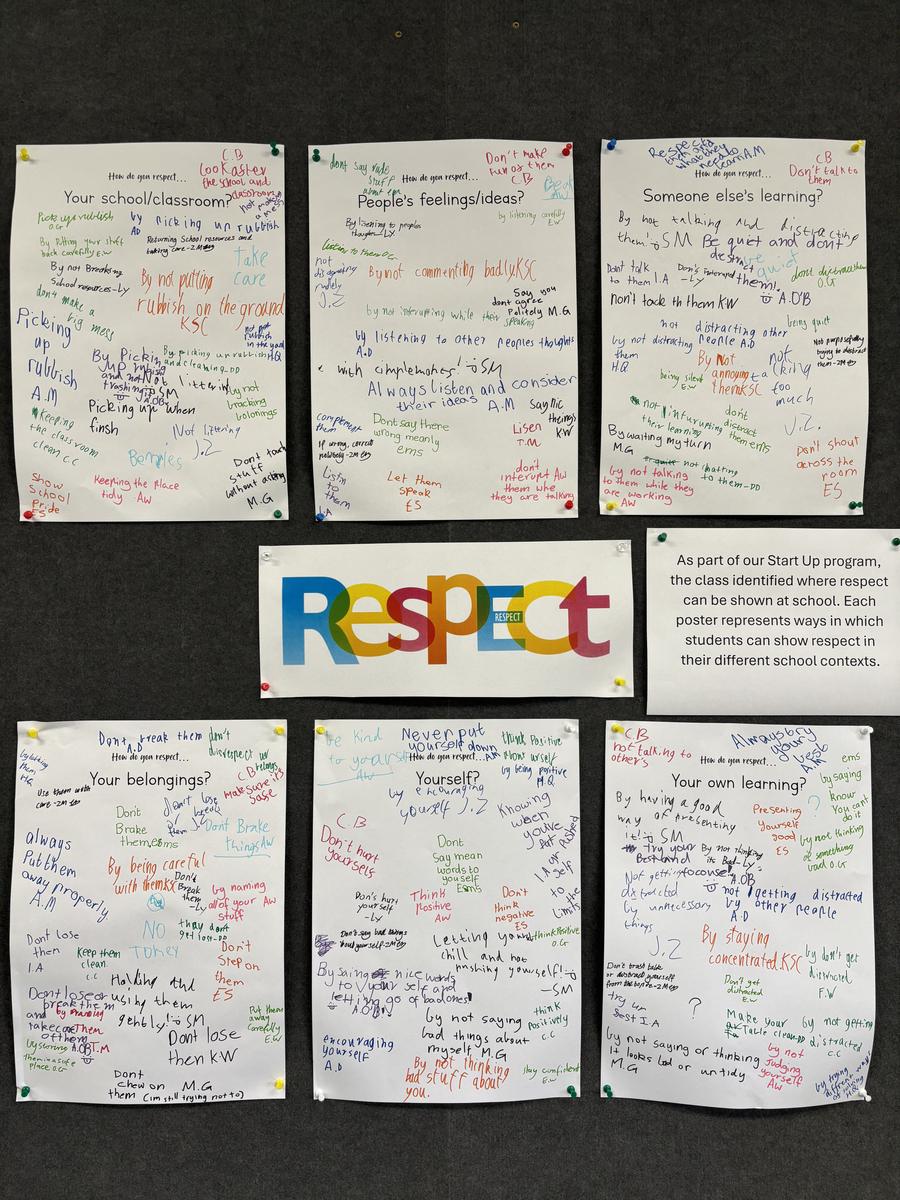 C.B
Look after
the school and
classroom
How do you respect...
Your school/classroom?
not making
a mess
Pick up rubbish
O.G
by picking up rubbish
AD
Returning School resources and
taking care-2M
By Putting your stuff
back carefully E.W
take
care
By not Breaking
School resources-Ly
By not putting
rubbish on the ground
KSC
don't make a
big mess
Picking
up
rubbish
A.M
By Picking
up rubbish
and not
trashing
A.O.B
Not
littering
SM
By picking up rubbish H.Q
and cleaning-DD
By not
bracking
bolonings
Picking up when
finsh
Keeping
the classroom
clean C.C
Not littering
J.Z
Bempies
Dont touch
stuff
without asking
M.G
Show
School
Pride
ES
Keeping the place
tidy AW
dont say rude
stuff
Don't make
fun of them
C.B
How do you respect...
People's feelings/ideas?
By listening to peoples
thoughts-Ly
by listening carefully
E.W
Listen to them O.G
not
disrespecting
rudely
J.Z
By not commenting badly.KSC
Say you
dont agree
Politely M.G
by not interrupting while their speaking
by listening to other peoples thoughts
A.D
with complements! SM
Always listen and consider
their ideas A.M
Say nic
theings
KW
complement
them
Dont say there
wrong meanly
ems
Lisen
T.M
If wrong, correct
politely-2M
Listn
to
them
I.A
Let them
speak
ES
don't
interupt AW
them whe
they are talking
Respect
them and
what they
need to
learn A.M
C.B
Don't talk to
them
How do you respect...
Someone else's learning?
By not talking and distracting
them. SM
Be quiet and dont
distract
them!
A.O.B
be
quiet
Dont talk
to them I.A
Don't interupt
-Ly
dont distract them
O.G
non't tack th them KW
not distracting other
people A.D
being quiet
by not distracting
them
H.Q
Not purposefully
trying to distract
them-2M
By Not
annoying
them KSC
not
talking
too
much
J.Z.
being silent
E.W
not infurupting
their learning
dont
distract
them ems
By waiting my turn
M.G
not chatting
to them-DD
Don't shout
across the
room
ES
by not talking
to them while they
are working
AW
Respect
RESPECT
As part of our Start Up program,
the class identified where respect
can be shown at school. Each
poster represents ways in which
students can show respect in
their different school contexts.
Dont break them
A.D
don't
disrespect ur
belongs
How do you respect...
Your belongings?
C.B
make sure it's
safe
Use them with
care-2M
Dont
Brake
them, ems
Don't lose
them
Dont Brake
things AW
always
Put them
away properly
A.M
By being careful
with them KSC
Don't
Break
them
-Ly
by naming
all of your AW
stuff
NO
they dont
get lost-DD
Dont lose
them
I.A
Keep them
clean.
C.C
Don't
Step on
them
ES
Holding and
using them
gently! SM
Dont lose or
break them
and
take care
of them
A.O.B
Them
T.M
Put them
away
Carefully
E.W
by storing
them in a safe
place O.G
Dont lose
then KW
Dont
chew on
them
M.G
(im still trying not to)
be kind
to yourself
AW
Never put
yourself down
A.M
think Positive
about urself
by being positive
H.Q
How do you respect...
Yourself?
by encouraging
yourself J.Z
Knowing
when
you've
pushed
self
to
the
limits
I.A
C.B
Don't hurt
yourselfs
Dont
Say mean
words to
yourself
Ems
Don't hurt
yourself
-Ly
Think
Positive
AW
Don't
think
negative
ES
Don't say bad things
about yourself-2M
think Positive
O.G
Letting yourself
chill and not
pushing yourself!
-SM
By saing nice words
to your self and
letting go of bad ones!
A.O.B
By not saying
bad things about
myself M.G
think
Positively
C.C
encouraging
yourself
A.D
By not thinking
bad stuff about
you.
stay confident
E.W
C.B
not talking to
other's
Always try
your
best
A.M
How do you respect...
Your own learning?
ems
by saying
?
know
You cant
do it
By having a good
way of presenting
it! SM
Presenting
yourself
good
ES
Try your
Best and
focuse!
A.O.B
By not thinking
its Bad-Ly
by not thinking
of something
bad O.G
Not getting
distracted
by unnecessary
things
J.Z
not getting distracted
by other people
A.D
By staying
concentrated.KSC
by don't get
distracted
F.W
Don't get
distracted
E.W
try ur
best I.A
?
Make your
Table clean-DD
by not getting
distracted
C.C
By not saying or thinking
It looks bad or untidy
M.G
by not
judging
yourself
AW
by trying
different ways
of thinking
H.Q